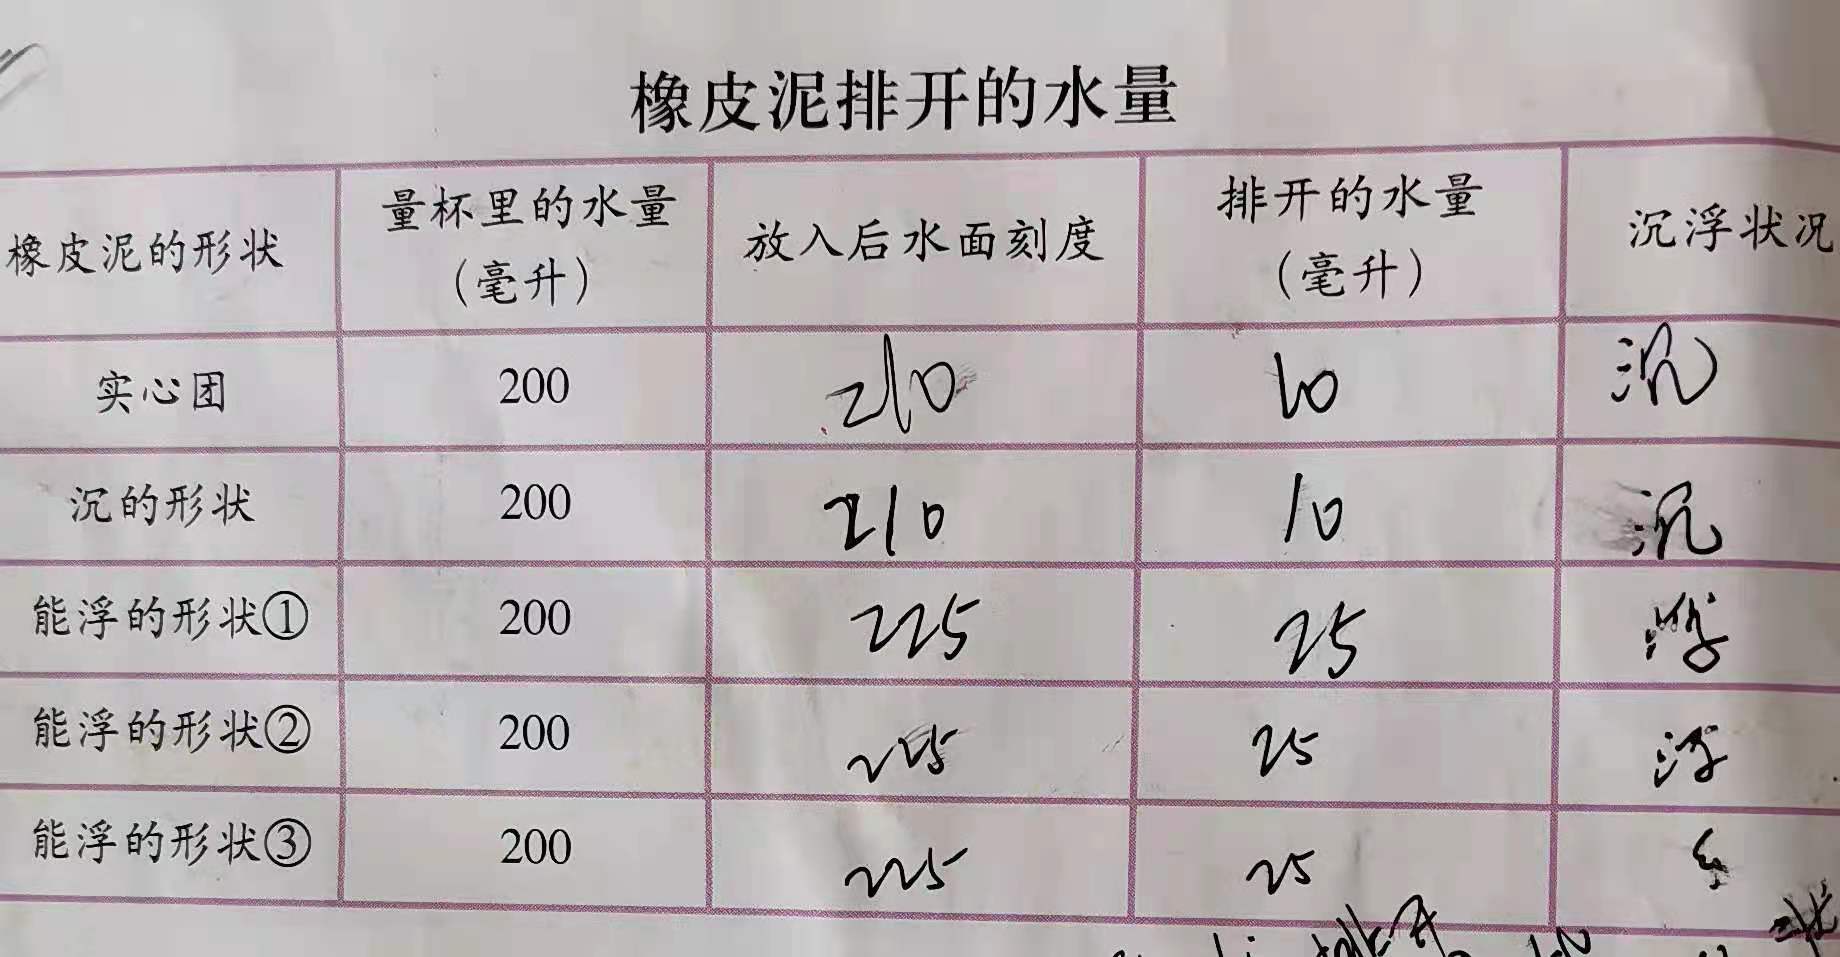 橡皮泥排开的水量
橡皮泥的形状 量杯里的水量（毫升） 放入后水面刻度 排开的水量（毫升） 沉浮状况
实心团 200 210 10 沉
沉的形状 200 210 10 沉
能浮的形状① 200 225 25 浮
能浮的形状② 200 225 25 浮
能浮的形状③ 200 225 25
排开